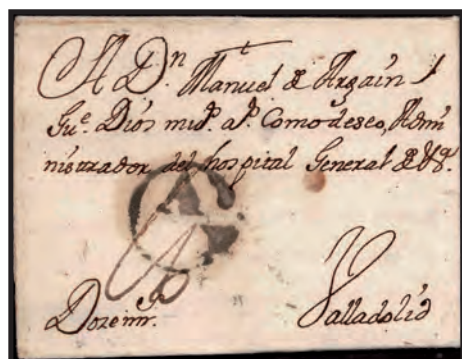 A Dn. Manuel de Argain
Gue. Dios ms. as. Como deseo, Admi
nistrador del hospital General de
A
Valladolid